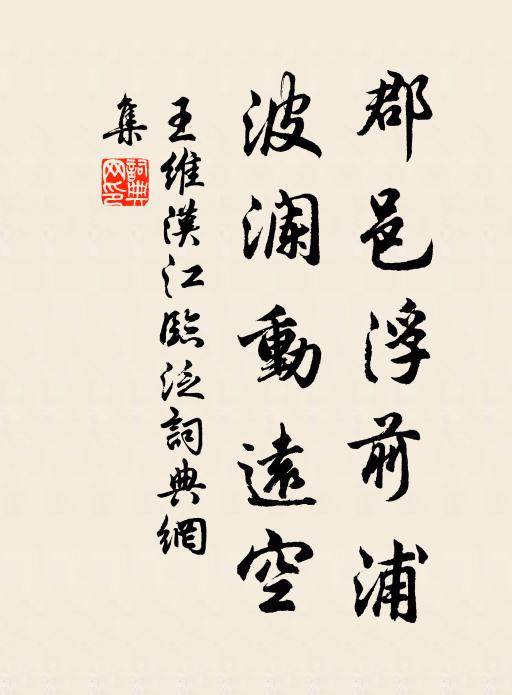 郡邑浮前浦
波瀾動遠空
王維漢江臨泛詞典網
集
詞典
网印